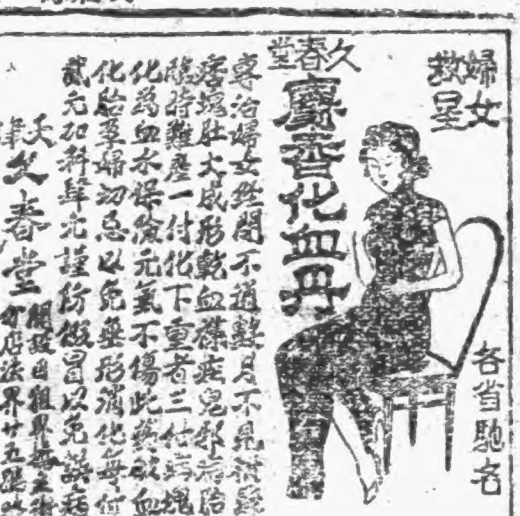 婦女
救星
各省馳名
久春堂
麝香化血丹
專治婦女經閉不通數月不見
痞塊肚大成形乾血癆疾兒
臨持難產一付化下重者三付
化為血水保險元氣不傷此藥破血
化胎孕婦切忌以免無形消化每付
貳元加料肆元謹防假冒以免誤
天津久春堂
開設日租界
分店法界廿五號路